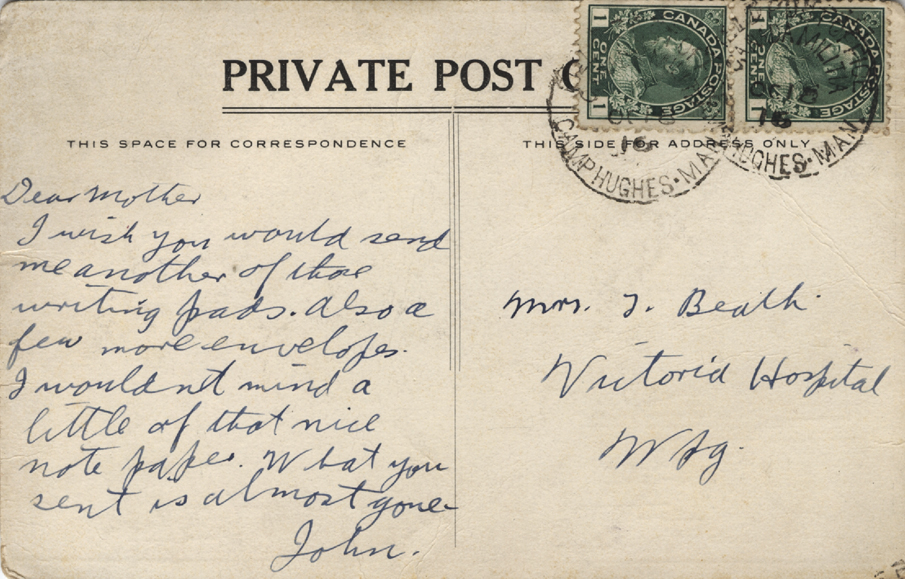 PRIVATE POST
THIS SPACE FOR CORRESPONDENCE
THIS SIDE FOR ADDRESS ONLY
CANADA POSTAGE
1 CENT 1
CANADA POSTAGE
1 CENT 1
CAMP HUGHES · MAN
OC 16
16
HUGHES · MAN
16
Dear Mother
I wish you would send
me another of those
writing pads. Also a
few more envelopes.
I wouldnt mind a
little of that nice
note paper. What you
sent is almost gone
John.
Mrs. J. Beath.
Victoria Hospital
Wpg.